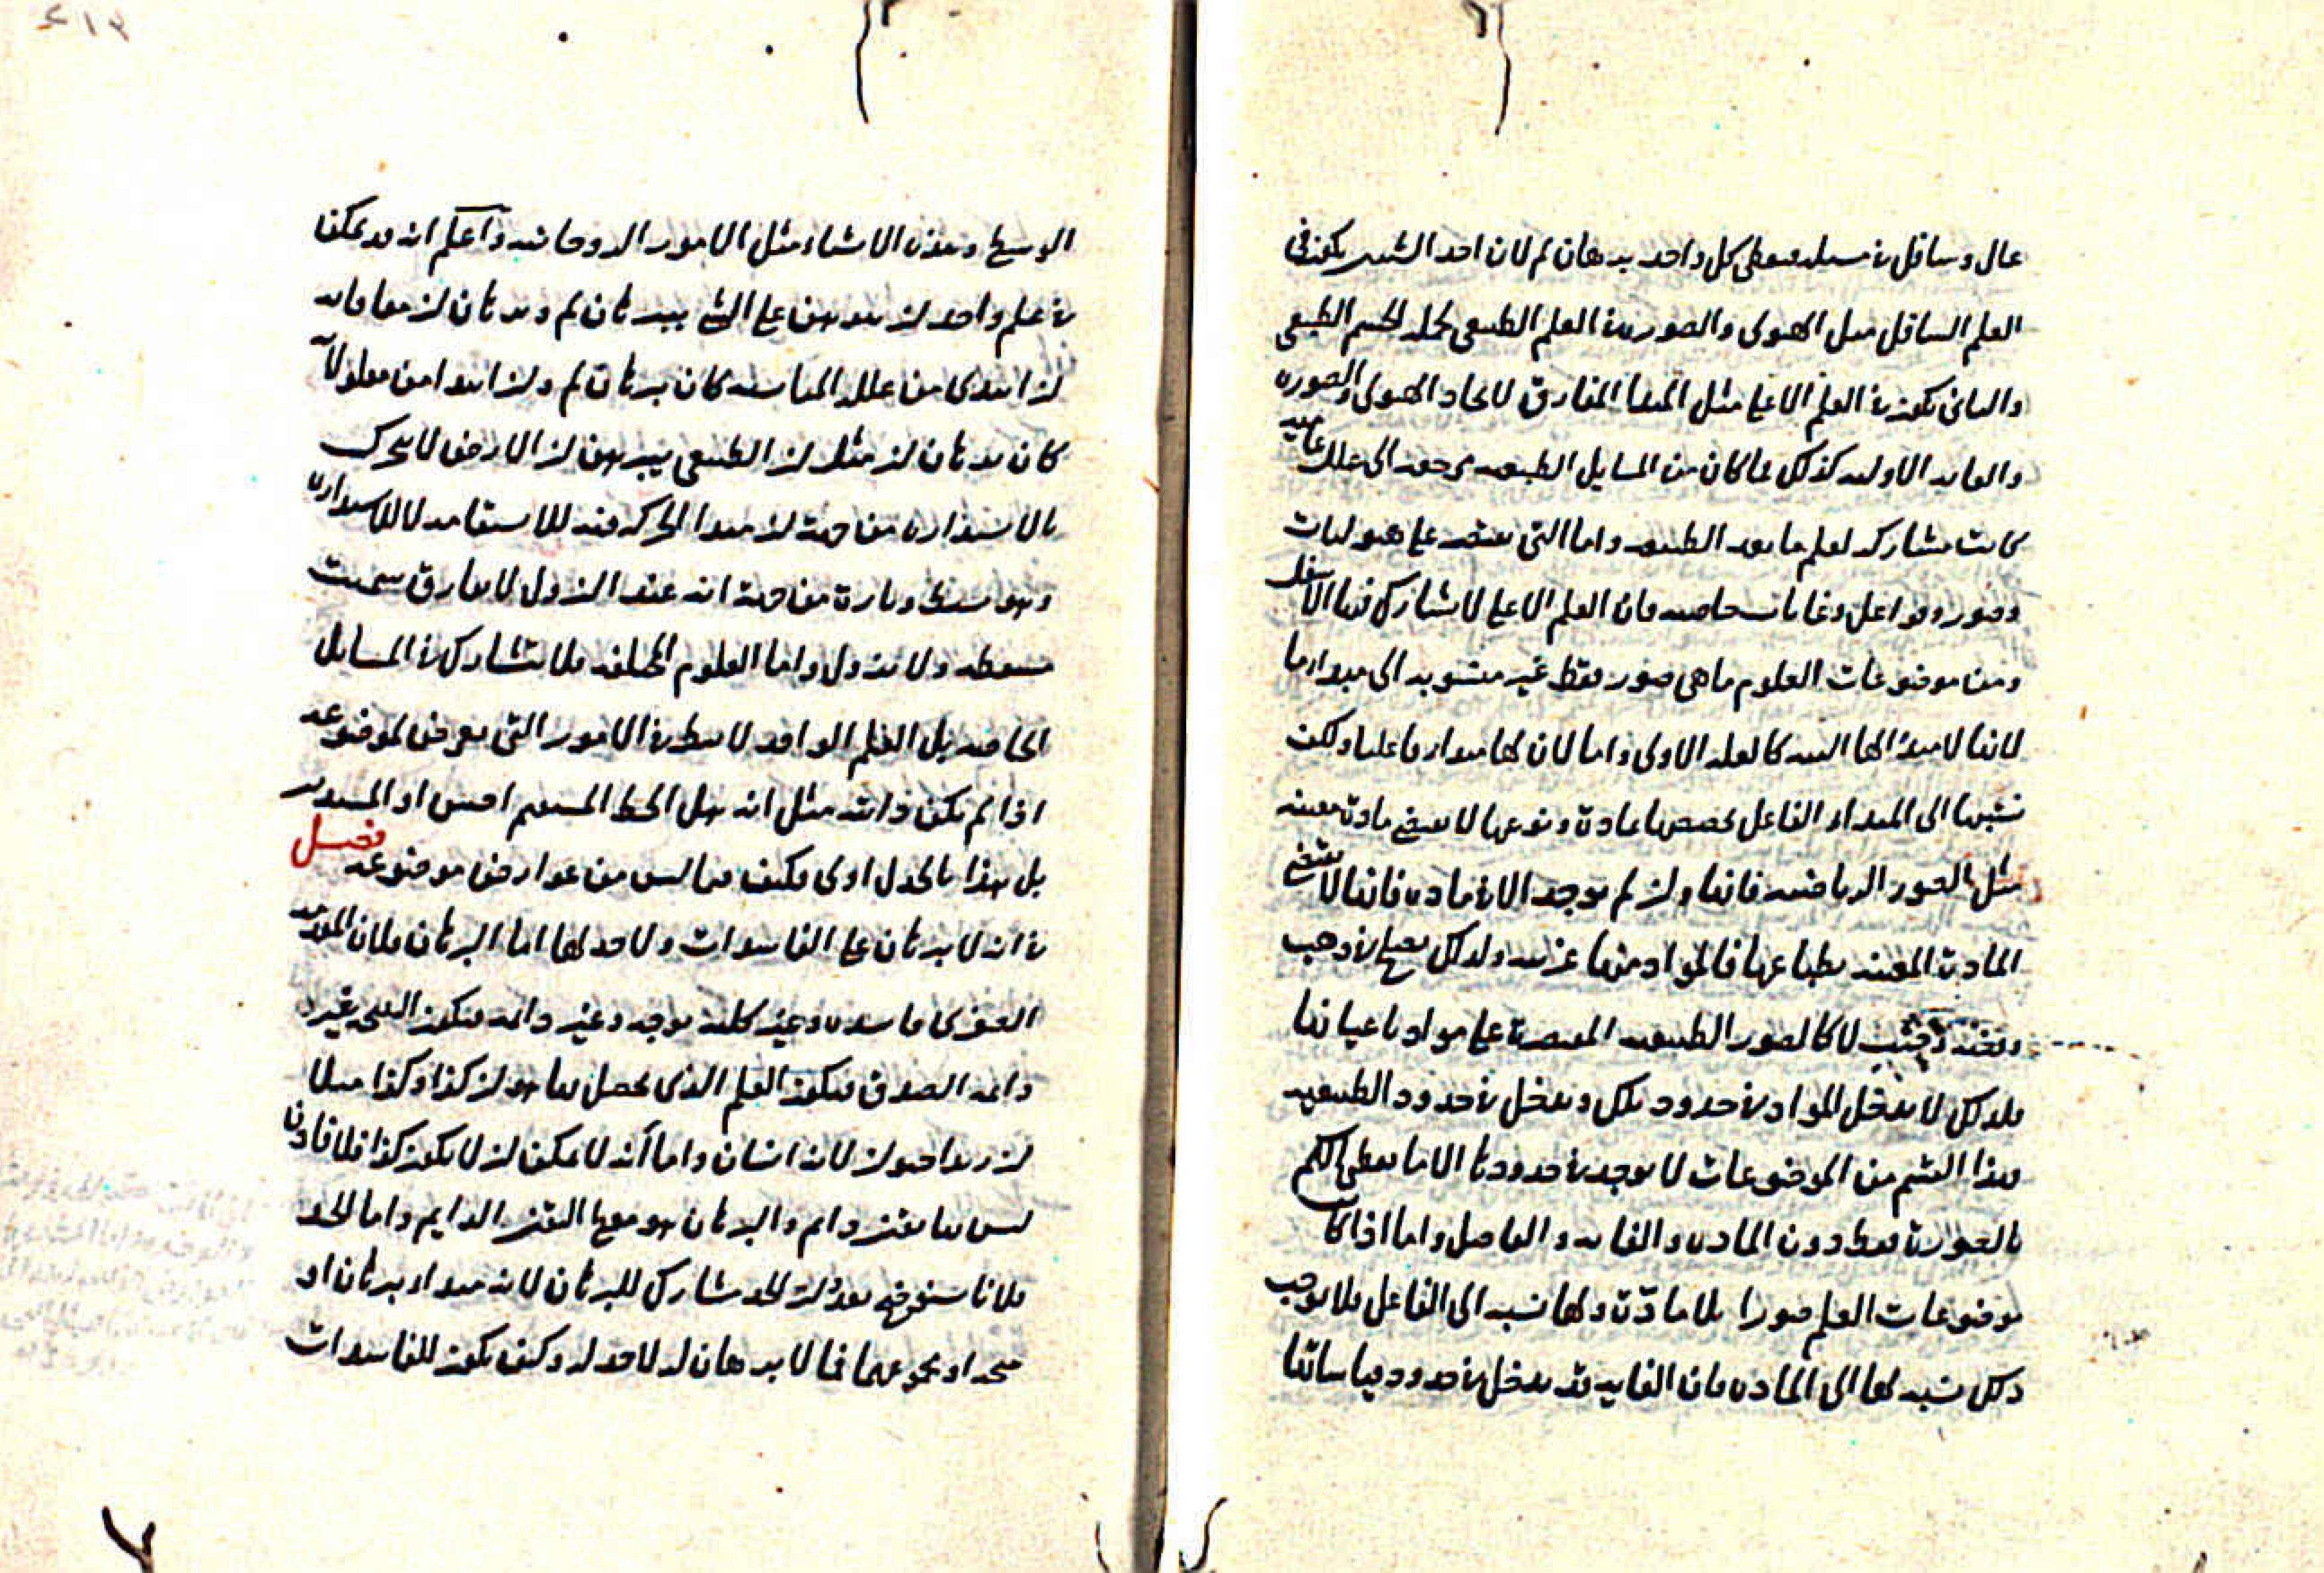 عال وسافل في مسئله فيعطى كل واحد برهان لم لان احد الشيئين يكون في
العلم السافل مثل الهيولى والصورة في العلم الطبيعى لجملة الجسم الطبيعى
والثانى يكون في العلم الاعلى مثل المبدا المفارق لاتحاد الهيولى والصورة
والغاية الاولية كذلك فما كان من المسايل الطبيعيه يرجع الى علل
كانت مشاركه لعلم ما بعد الطبيعه واما التى تقتصر على هيوليات
وصور وفواعل وغايات خاصه فان العلم الاعلى لا يشارك فيها الاسفل
ومن موضوعات العلوم ما هى صور فقط غير منسوبه الى مبدا، اما
لانها لا مبدا لها البته كالعله الاولى واما لان لها مبدا، فاعليا ولكن
نسبتها الى المبدا، الفاعل تخصصها بمادة ونوعها لا يقتضى مادة معينه
مثل الصور الرياضيه فانها وان لم يوجد الا في مادة فانها لا تقتضى
المادة المعينه بطباعها فالمواد منها غريبه ولذلك يصلح في ذهب
وفضة وخشب لا كالصور الطبيعيه المقتصرة على مواد باعيانها
فلذلك لا يدخل المواد في حدود تلك ويدخل في حدود الطبيعيه
فهذا القسم من الموضوعات لا يوجد في حدودها الا ما يعطى الكم
بالصورة فقط دون المادة والغاية والفاعل واما اذا كان
موضوعات العلم صورا بلا مادّة ولها نسبه الى الفاعل فلا يوجب
ذلك نسبه لها الى المادة فان الغاية قد يدخل في حدود قياساتها
٤١٣
الوسطى وهذه الاشياء مثل الامور الروحانيه واعلم انه قد يمكننا
في علم واحد ان نبرهن على الشى ببرهان لم وبرهان ان معا فانه
ان ابتدى من علله المناسبه كان برهان لم وان ابتدا من معلولا
كان برهان ان مثل ان الطبيعى يبرهن ان الارض لا يتحرك
بالاستدارة من جهة ان مبدا الحركه فيه للاستقامه لا للاستدارة
وهو بسيط وتارة من جهة انه عند النزول لا يفارق سمت
مسقطه ولا يزول واما العلوم المختلفه فلا يتشارك في المسايل
الخاصه بل العلم الواحد لا ينظر في الامور التى تعرض لموضوعه
اذا لم يكن ذاتيه مثل انه هل الخط المستقيم احسن او المستدير
بل هذا بالجدل اولى فكيف فيما ليس من عوارض موضوعه فصل
في انه لا برهان على الفاسدات ولا حد لها اما البرهان فلان المقدمه
الصغرى فاسده وغير كليه بوجه وغير دايمه فيكون النتيجه غير
دايمه الصدق فيكون العلم الذى يحصل بها هو ان كذا وكذا مثلا
ان زيدا حيوان لانه انسان واما انه لا يمكن ان لا يكون كذا فلا فاذن
ليس بها يقين دايم والبرهان هو معها اليقين الدايم واما الحد
فلانا سنوضح بعد ان الحد مشارك للبرهان لانه مبدا، برهان او
نتيجه او مجموعهما فما لا برهان له لا حد له وكيف يكون للفاسدات